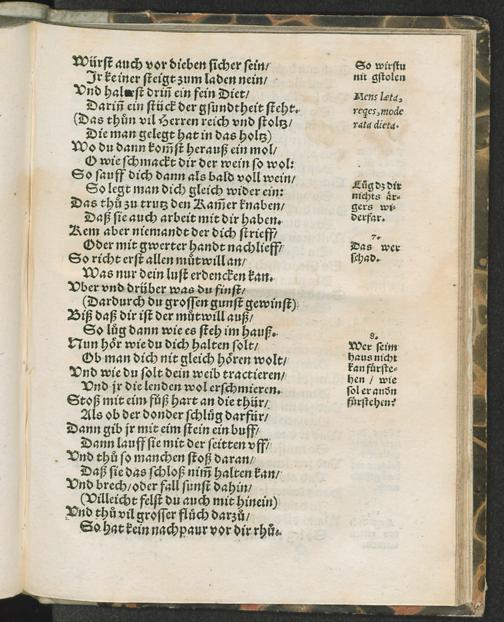 Würst auch vor dieben sicher sein/
Jr keiner steigt zum laden nein/
Vnd haltst driñ ein fein Diet/
Dariñ ein stück der gsundtheit steht.
(Das thůn vil Herren reich vnd stoltz/
Die man gelegt hat in das holtz)
Wo du dann kom̃st herauß ein mol/
O wie schmackt dir der wein so wol:
So sauff dich dann als bald voll wein/
So legt man dich gleich wider ein:
Das thů zu trutz den Kam̃er knaben/
Daß sie auch arbeit mit dir haben.
Kem aber niemandt der dich strieff/
Oder mit gwerter handt nachlieff/
So richt erst allen můtwill an/
Was nur dein lust erdencken kan.
Vber vnd drüber was du finst/
(Dardurch du grossen gunst gewinst)
Biß daß dir ist der můtwill auß/
So lůg dann wie es steh im hauß.
Nun hör wie du dich halten solt/
Ob man dich nit gleich hören wolt/
Vnd wie du solt dein weib tractieren/
Vnd jr die lenden wol erschmieren.
Stoß mit eim fůß hart an die thür/
Als ob der donder schlüg darfür/
Dann gib jr mit eim stein ein buff/
Dann lauff sie mit der seitten vff/
Vnd thů so manchen stoß daran/
Daß sie das schloß nim̃ halten kan/
Vnd brech/oder fall sunst dahin/
(Villeicht felst du auch mit hinein)
Vnd thů vil grosser flüch darzů/
So hat kein nachpaur vor dir rhů.
So wirstu
nit gstolen
Mens læta,
reqes, mode
rata dieta.
Lůg dz dir
nichts är-
gers wi-
derfar.
7.
Das wer
schad.
8.
Wer seim
haus nicht
kan fürste-
hen / wie
sol er andn
fürstehen?